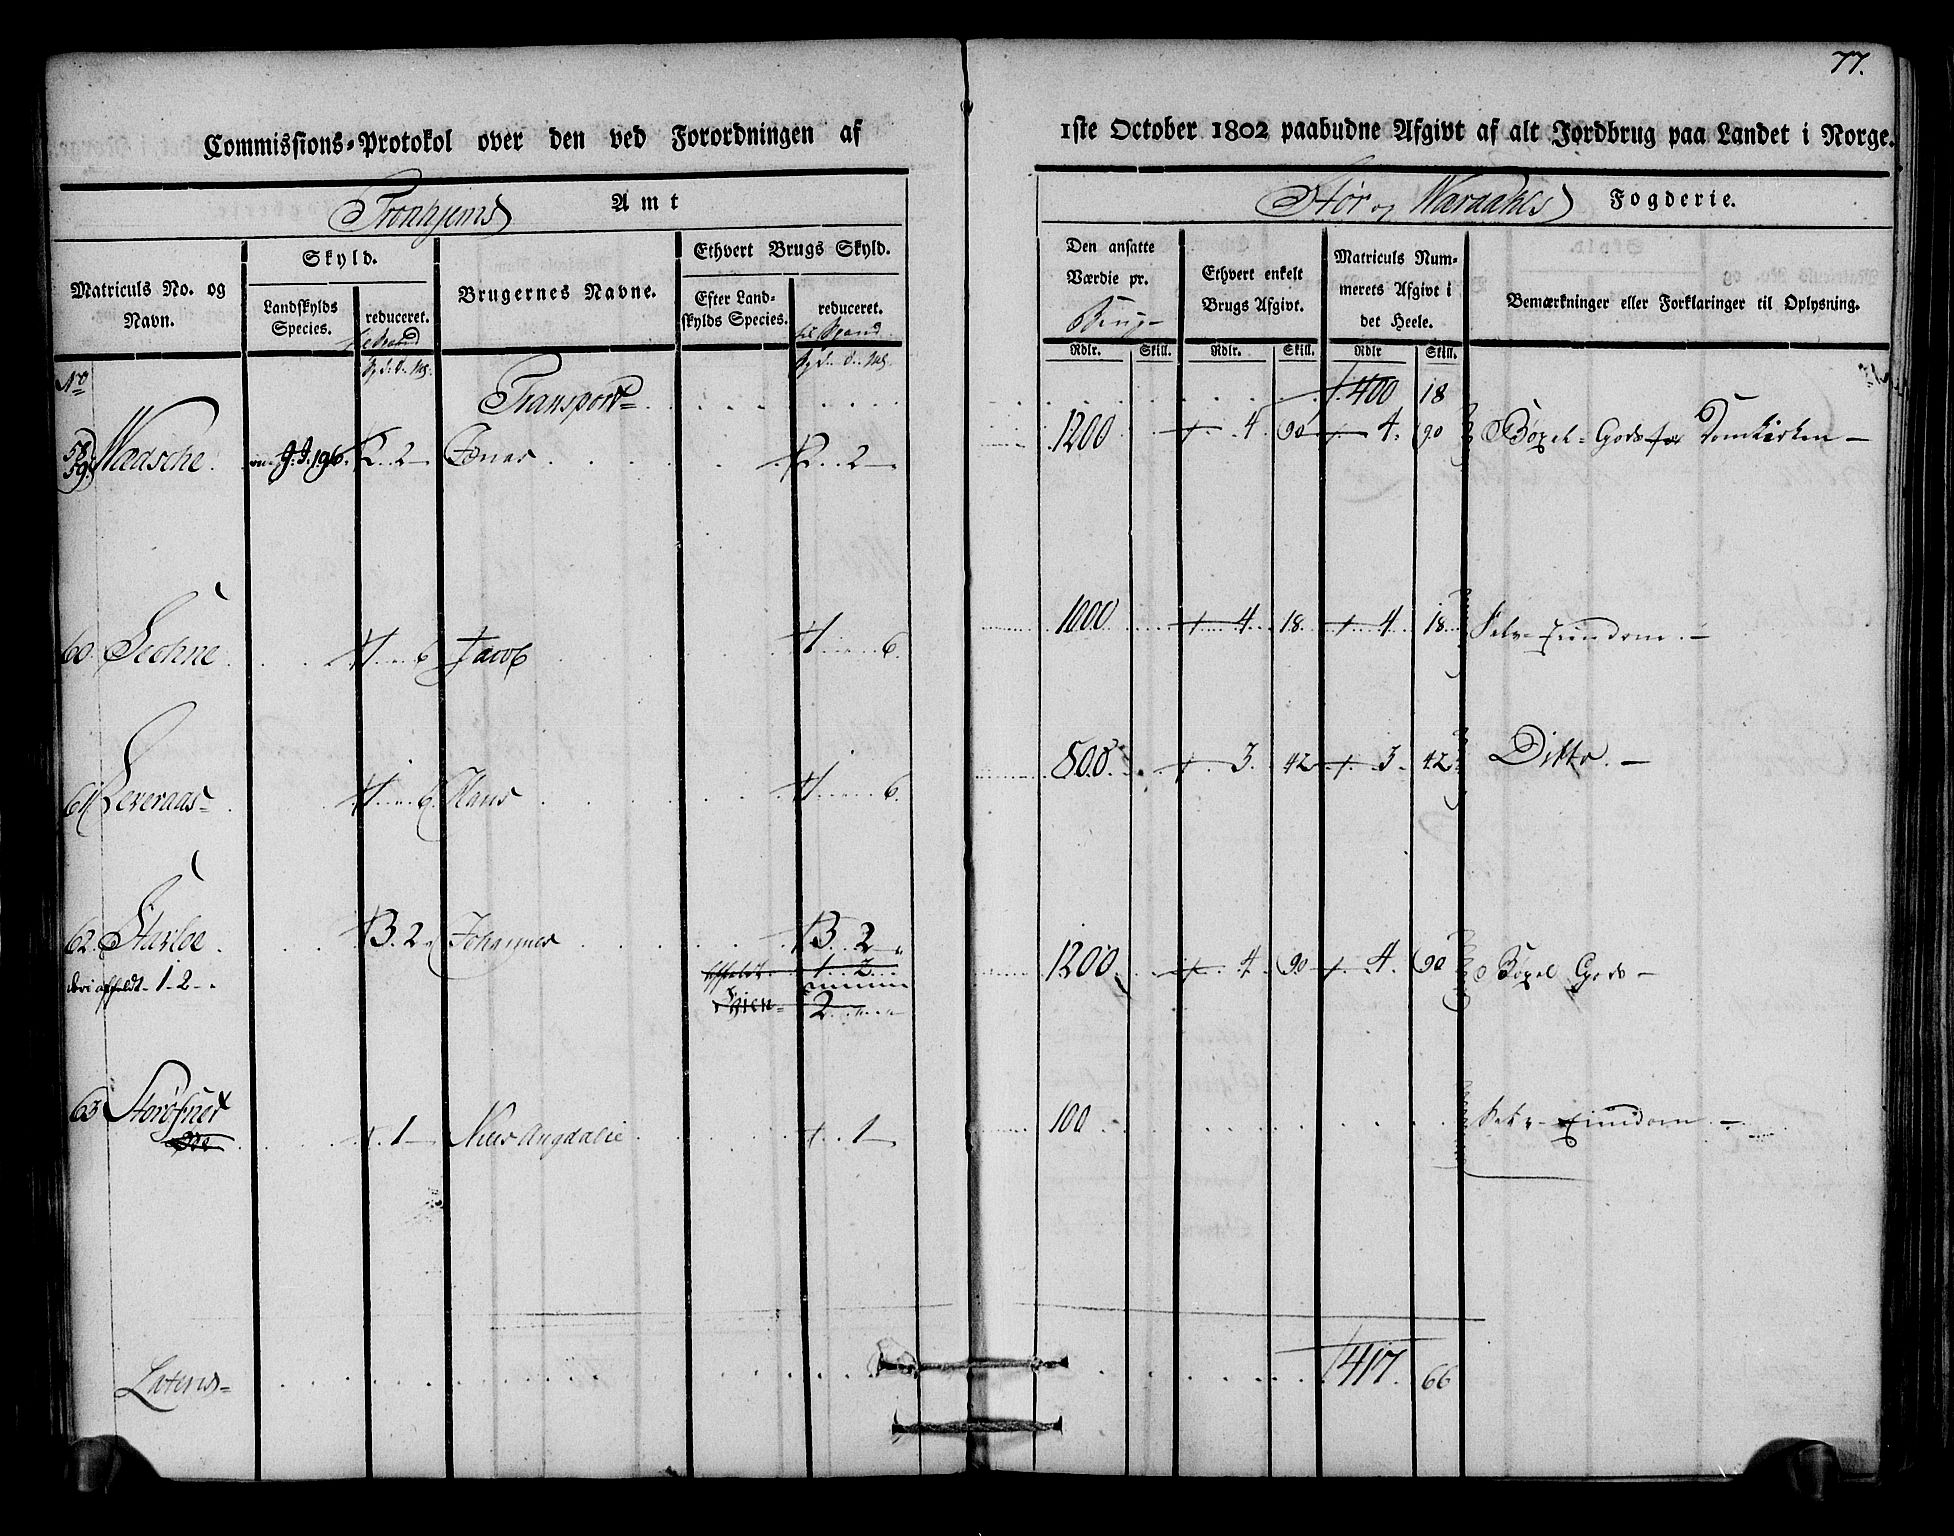 77.
Commissions-Protokol over den ved Forordningen af 1ste October 1802 paabudne Afgivt af alt Jordbrug paa Landet i Norge.
Tronhjems Amt
Stør og Wæradahls Fogderie.
Matriculs No. og Navn.
Skyld.
Landskylds Species.
reduceret.
Brugernes Navne.
Ethvert Brugs Skyld.
Efter Landskylds Species.
reduceret.
Den ansatte Værdie pr. Brug
Ethvert enkelt Brugs Afgivt.
Matriculs Nummerets Afgivt i det Heele.
Bemærkninger eller Forklaringer til Oplysning.
Rdlr. Skill. Rdlr. Skill. Rdlr Skill.
No Transport 400 18
58 59 Wædsche 2 2 1200 4 90 4 90 Bøxel-Gods Domkirken
60 6 Jacob 6 1000 4 18 4 18 Selv-Eiendom
61 Leveraas 6 Hans 6 800 3 42 3 42 Ditto
62 3 2 Johannes 3 2 1200 4 90 4 90 Bøxel Gods
1-2 1 2
Igien 2
63 1 Niels 1 100 Selv-Eiendom
Lateris 417 66